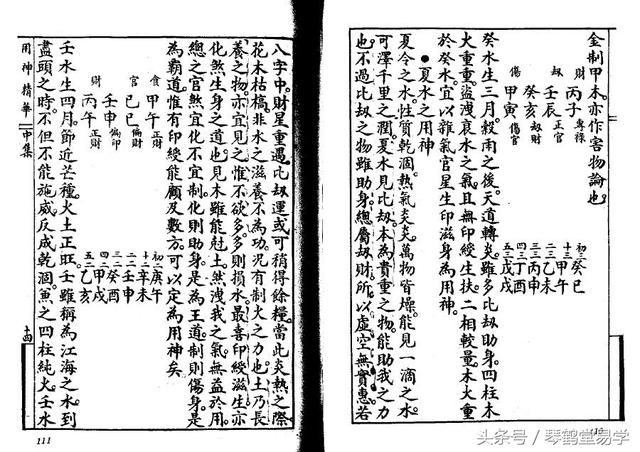 金制甲木亦作害物論也
財
丙子
專祿
壬辰
正官
劫
癸亥
劫財
傷
甲寅
傷官
初三
癸巳
十三
甲午
二三
乙未
三三
丙申
四三
丁酉
五三
戊戌
癸水生三月。穀雨之後。天道轉炎。雖多比劫助身。四柱木
火重重。盜洩衰水之氣。且無印綬生扶。二相較量。木火重
於癸水。宜以雜氣官星生印滋身為用神。
●夏水之用神
夏令之水。性質乾涸。熱氣炎炎。萬物皆燥。能見一滴之水。
可澤千里之潤。夏水見比劫。本為貴重之物。能助我之力
也。不過比劫之物。雖助身。總屬劫財。所以虛空無實惠。若
110
八字中。財星重遇。比劫運或可稍得餘糧。當此炎熱之際
花木枯槁。非水之滋養不為功。況有制火之力也。土乃長
養之物。亦宜見之。惟不欲多。多則損水。最喜印綬滋生。亦
化煞生身之道也。見木雖能尅土。然洩我之氣。無益於用
總之官煞宜化不宜制。化則助身。是為王道。制則傷身。是
為霸道。惟有印綬能顧及數方。可以定為用神矣
食
甲午
正財
官
己巳
偏財
壬申
偏印
財
丙午
正財
初二
庚午
十二
辛未
二二
壬申
三二
癸酉
四二
甲戌
五二
乙亥
壬水生四月。節近芒種。火土正旺。壬雖稱為江海之水。到
盡頭之時。不但不能施威。反成乾涸。魚之四柱純火。壬水
用神精華
中集
111
头条号/琴鹤堂易学